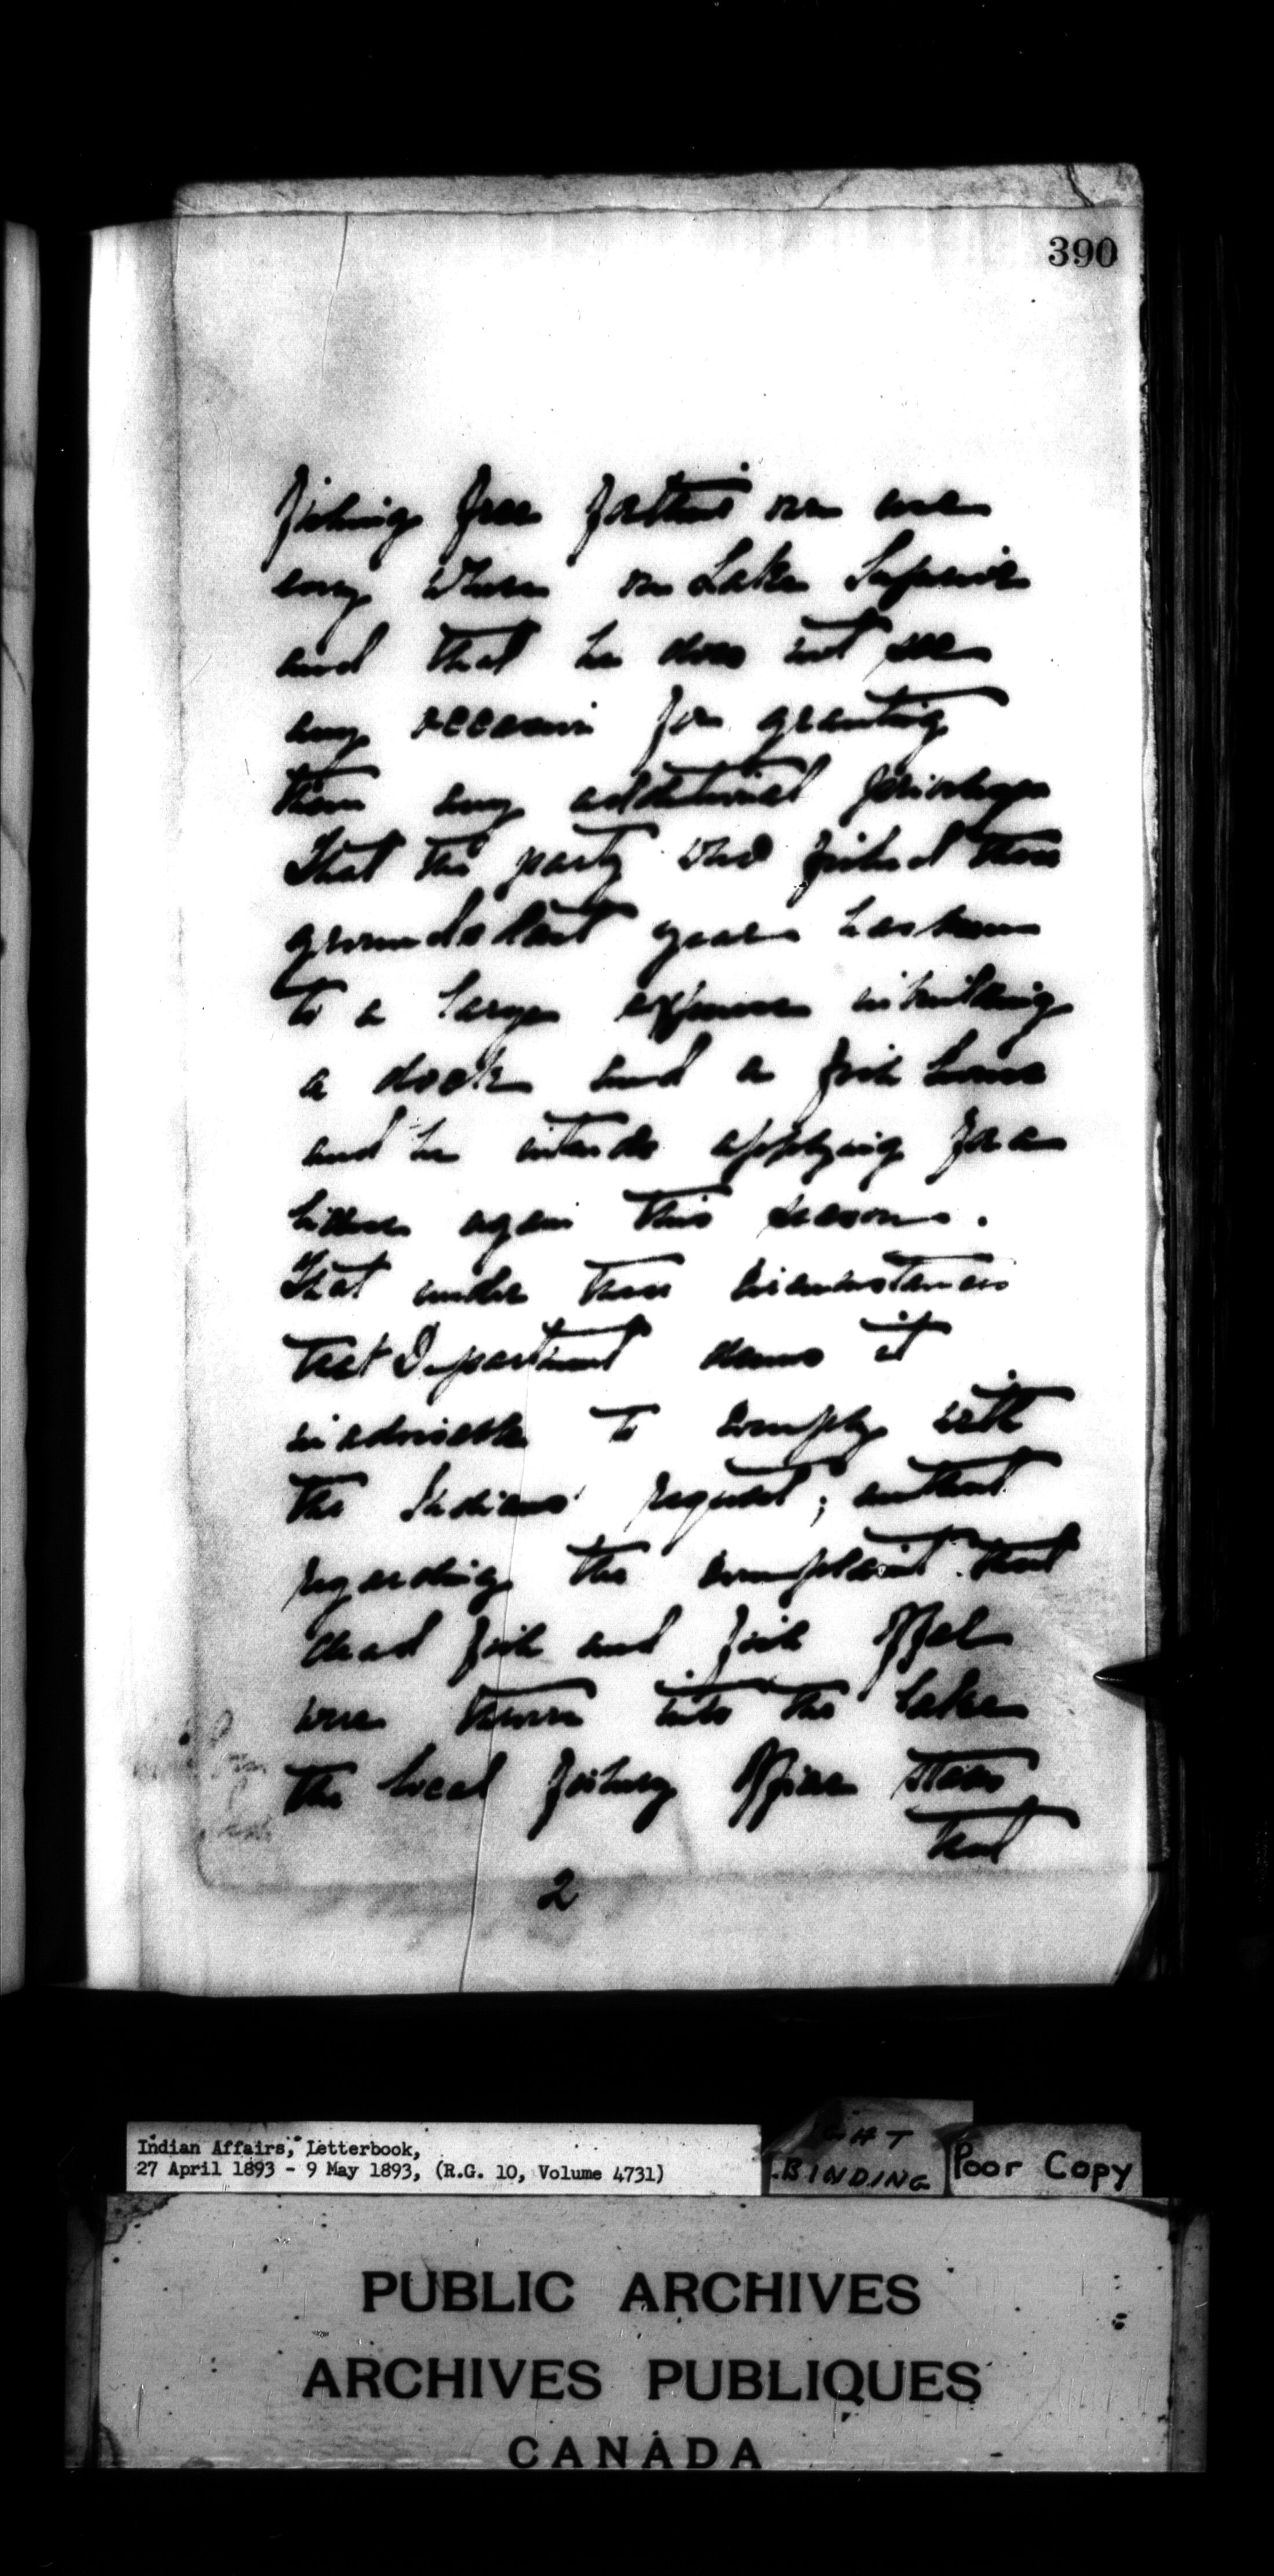 390
fishing free for their own use
any where on Lake Superior
and that he does not see
any reason for granting
them any additional privileges
That the party who fished these
grounds last year has been
to a large expense in building
a dock and a fish house
and he intends applying for a
license again this season.
That under these circumstances
that Department deems it
inadvisable to comply with
the Indians' request; and that
regarding the complaint that
dead fish and fish offal
were thrown into the lake
the local fishery officer states
that
2
Indian Affairs, Letterbook,
27 April 1893 - 9 May 1893, (R.G. 10, Volume 4731)
BINDING
Poor Copy
PUBLIC ARCHIVES
ARCHIVES PUBLIQUES
CANADA